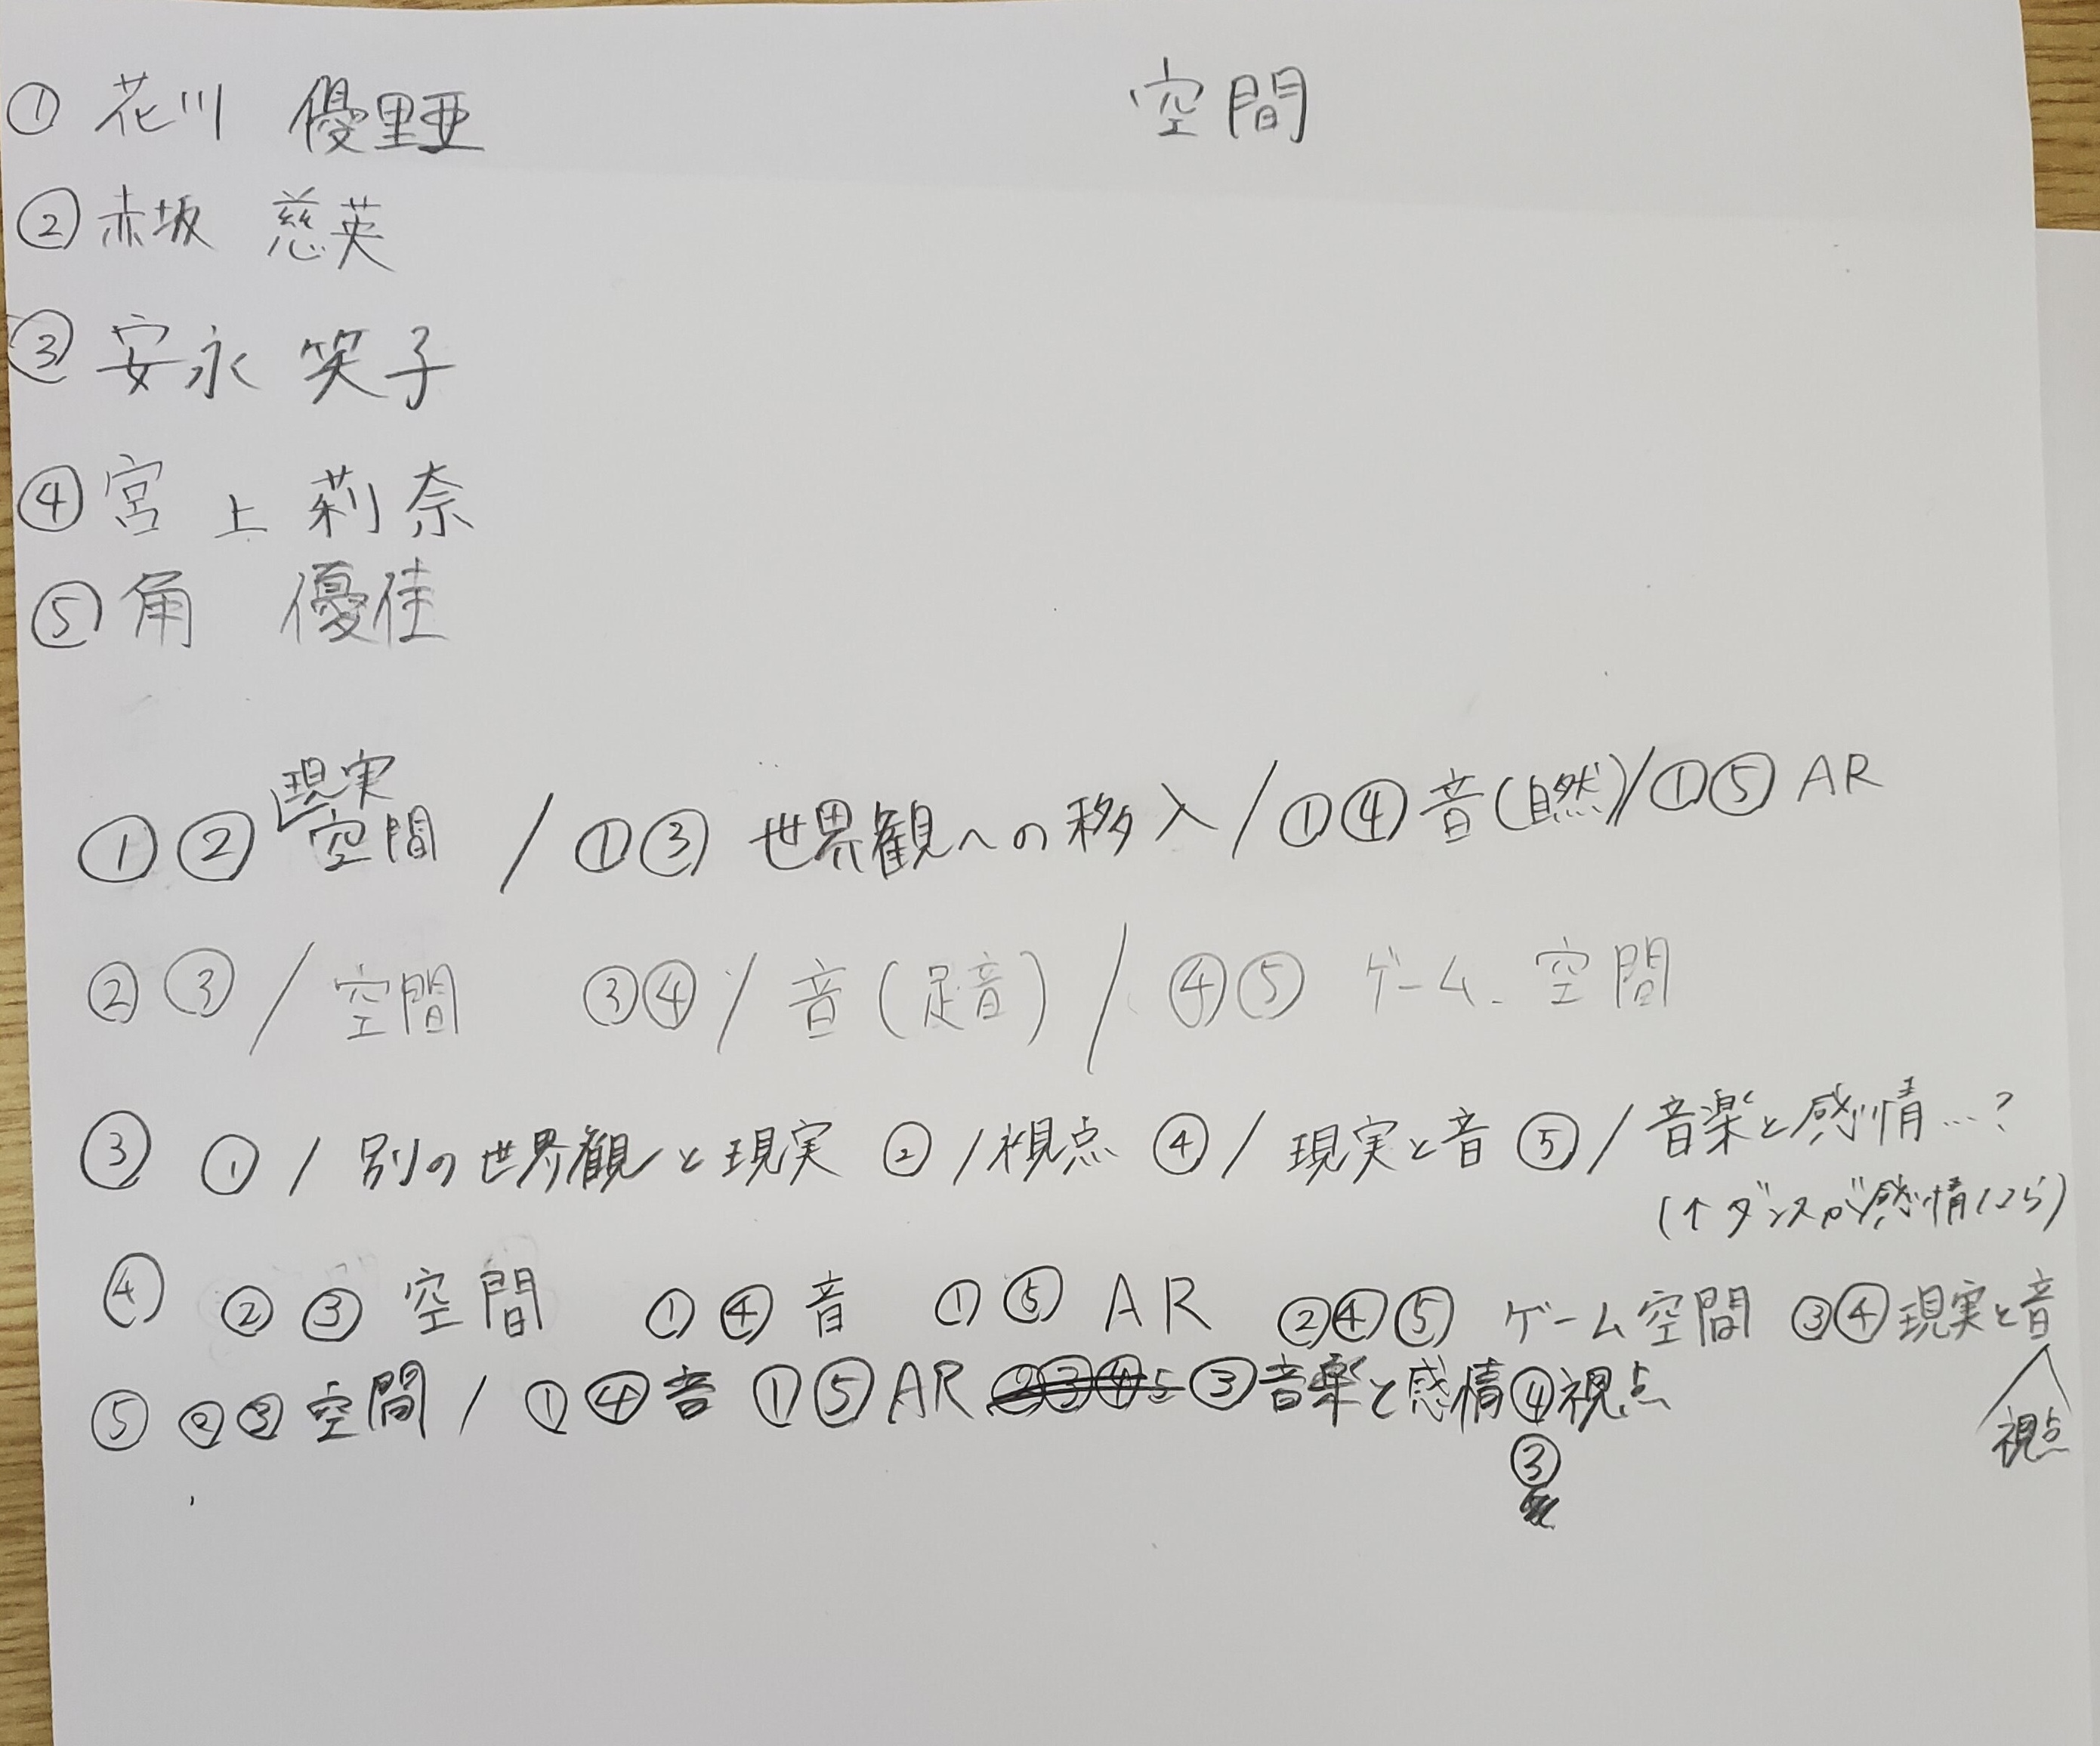 空間
① 花川 優里亜
② 赤坂 慈英
③ 安永 笑子
④ 宮上 莉奈
⑤ 角 優佳
現実
①② 空間 / ①③ 世界観への移入 / ①④ 音(自然) / ①⑤ AR
②③ / 空間 ③④ / 音(足音) / ④⑤ ゲーム 空間
③ ① / 別の世界観と現実 ② / 視点 ④ / 現実と音 ⑤ / 音楽と感情…?
(↑ダンスが感情
④ ②③ 空間 ①④ 音 ①⑤ AR ②④⑤ ゲーム空間 ③④現実と音
⑤ ②③ 空間 / ①④音 ①⑤AR ③音楽と感情④視点
視点
③